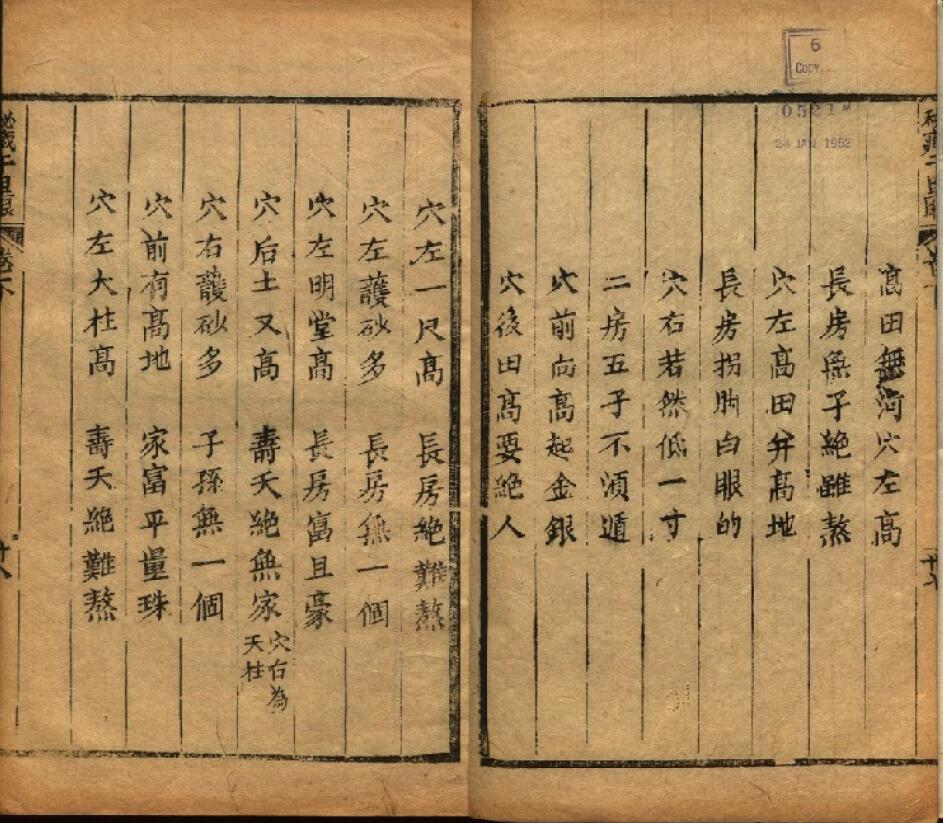 6
Copy
24 JAN 1952
高田無河穴左高
長房無子絶雖熬
穴左高田并高地
長房拐脚白眼的
穴右若然低一寸
二房五子不須遁
穴前向高起金銀
穴後田高要絶人
穴左一尺高 長房絶難熬
穴左護砂多 長房無一個
穴左明堂高 長房富且豪
穴后土又高 壽夭絶無家 穴右為天柱
穴右護砂多 子孫無一個
穴前有高地 家富平量珠
穴左大柱高 壽夭絶難熬